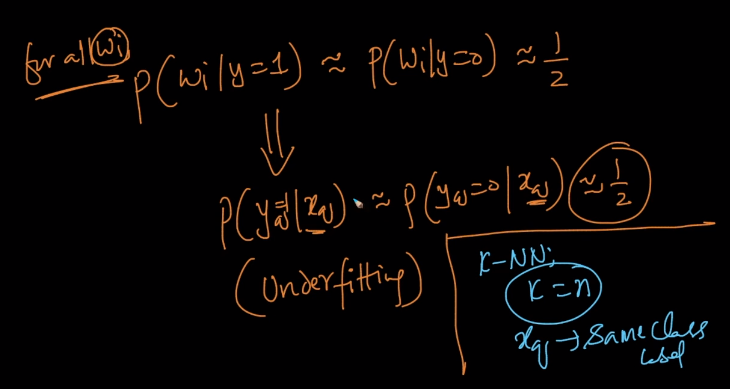 for all wi
P(wi|y=1) ≈ P(wi|y=0) ≈ 1/2
⇓
P(yq=1|xq) ≈ P(yq=0|xq) ≈ 1/2
(Underfitting)
K-NN;
K=n
xq → Same class
label